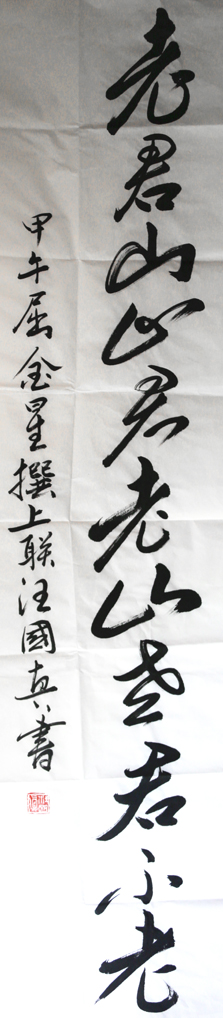 老君山山君老山老君不老
甲午屈金星撰上联汪國真书